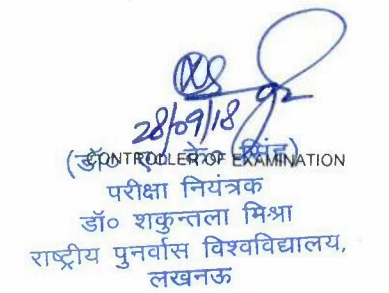 28/09/18
(डॉ० ए० के० सिंह)
CONTROLLER OF EXAMINATION
परीक्षा नियंत्रक
डॉ० शकुन्तला मिश्रा
राष्ट्रीय पुनर्वास विश्वविद्यालय,
लखनऊ